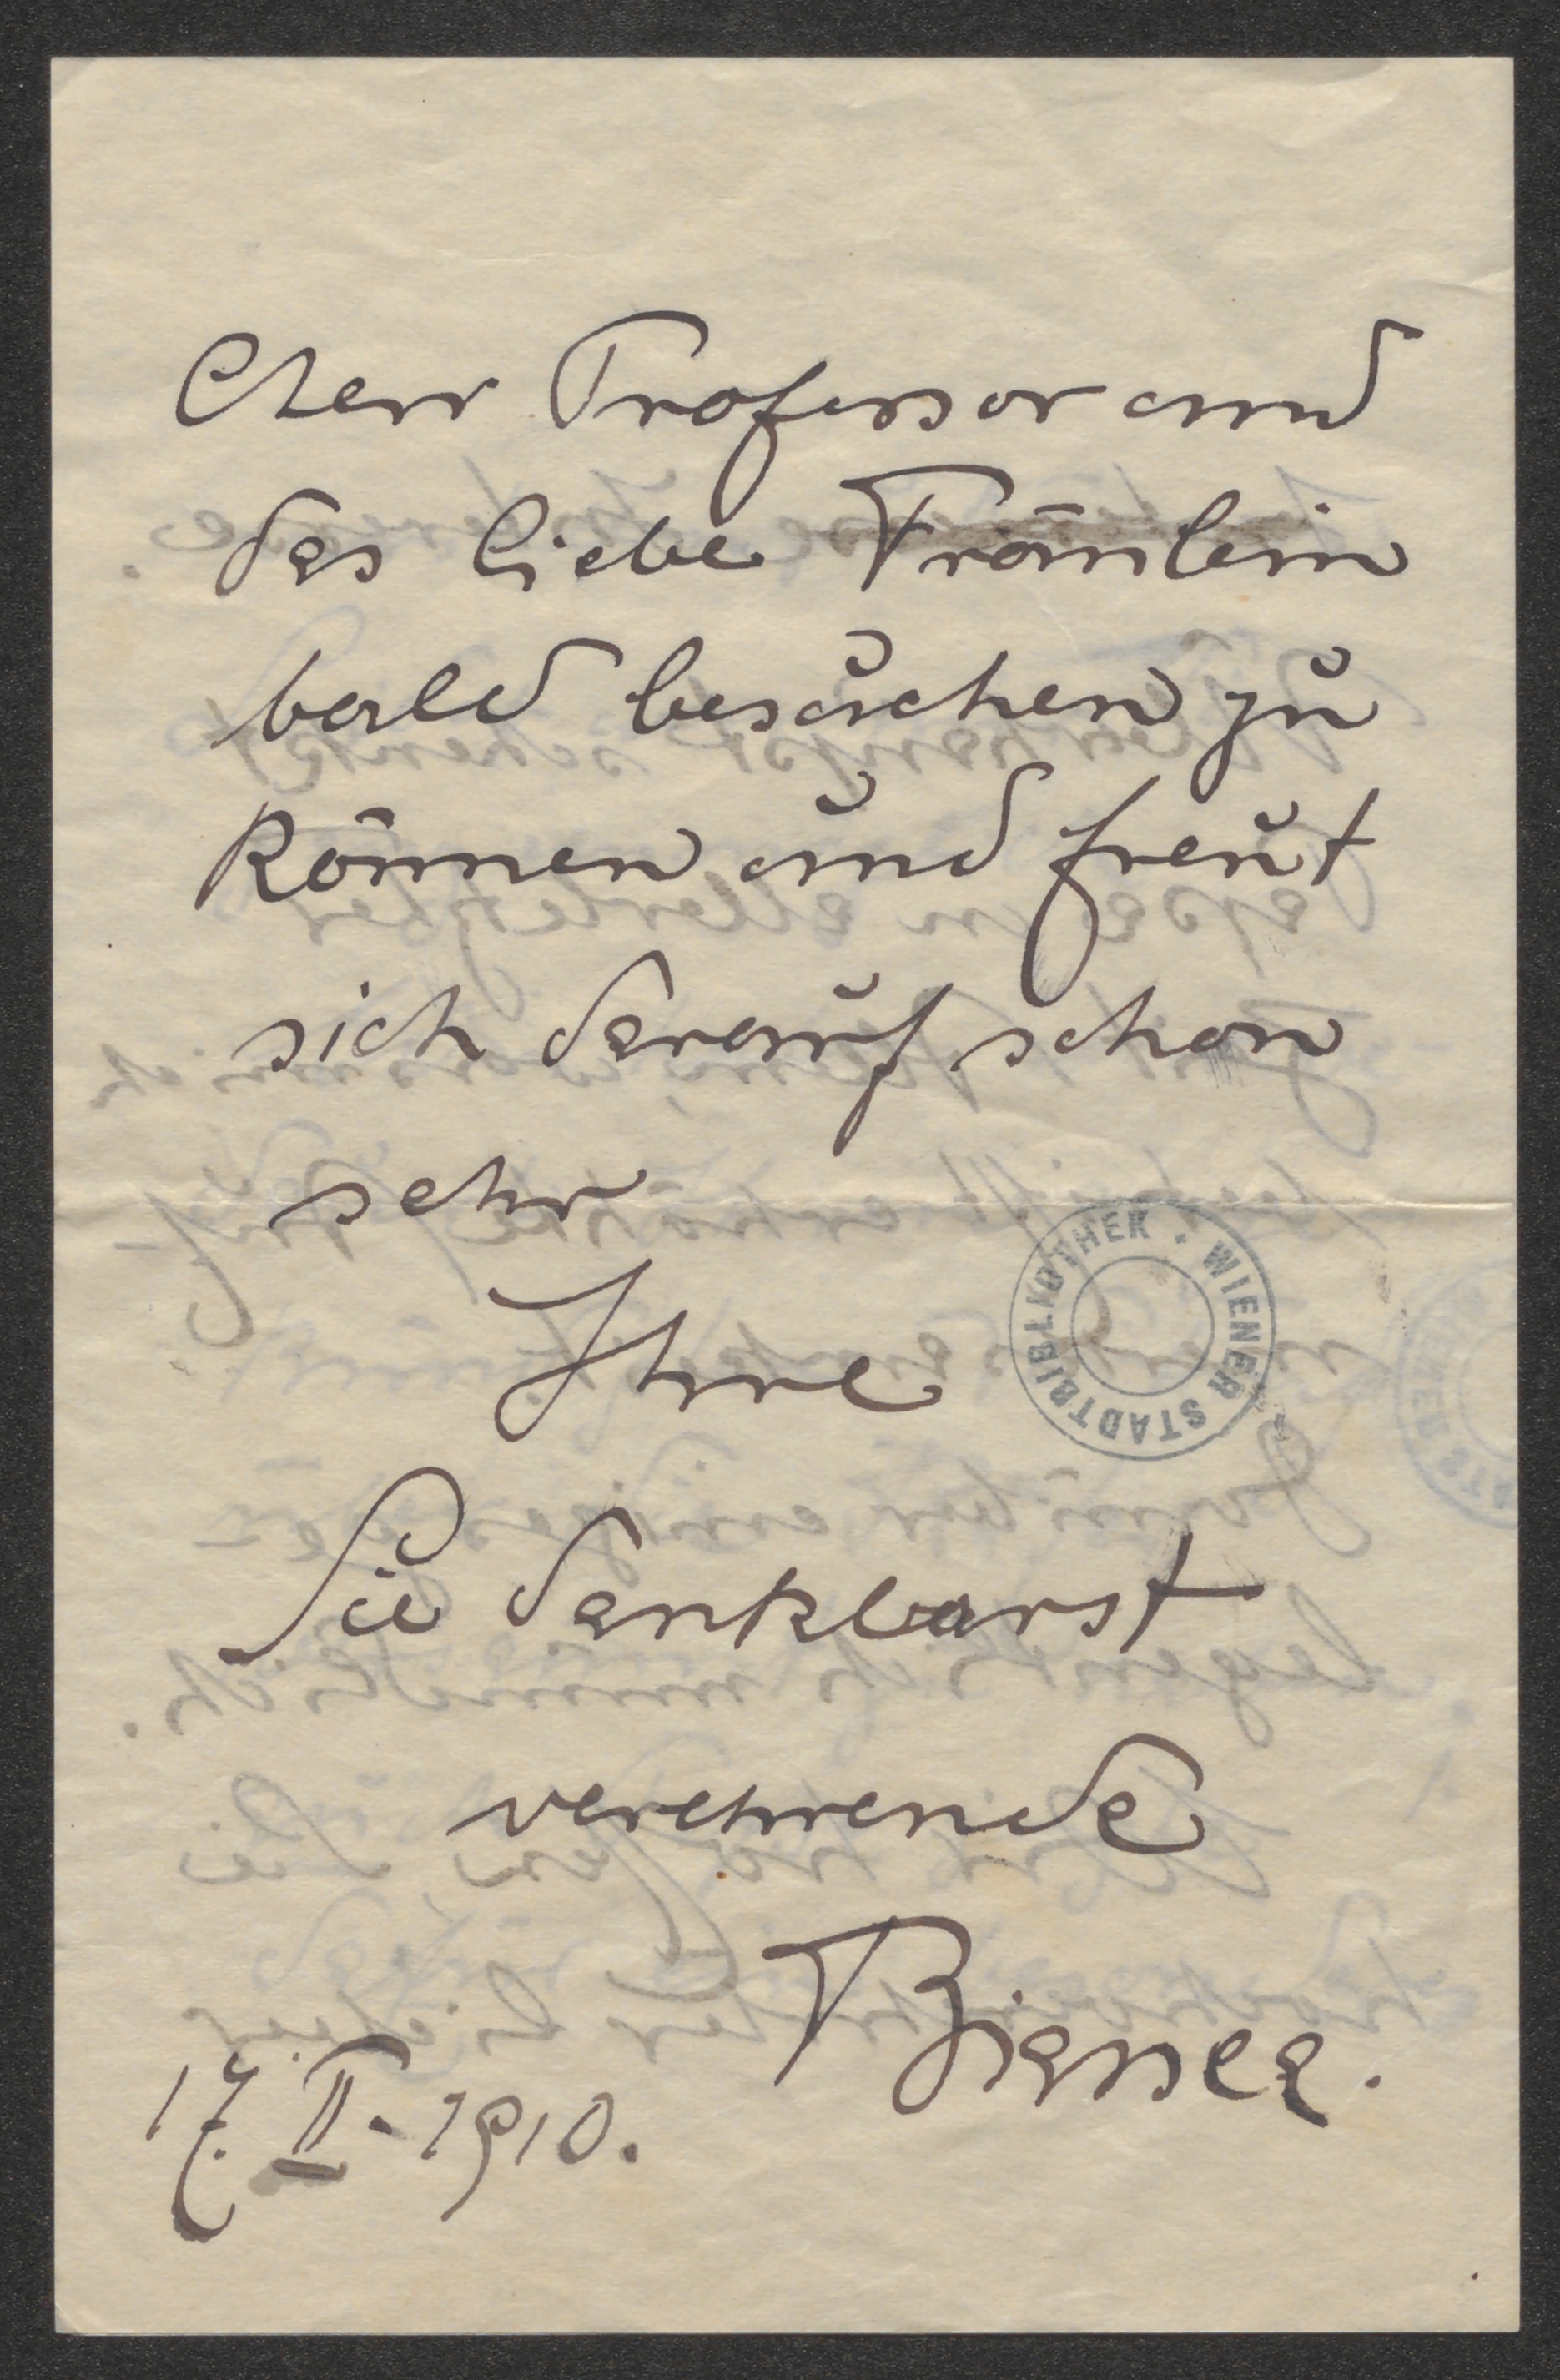 Herr Professor und
das liebe Fräulein
bald besuchen zu
können und freut
sich darauf schon
sehr
Ihre
WIENER STADTBIBLIOTHEK
Sie dankbarst
verehrende
17. II. 1910.